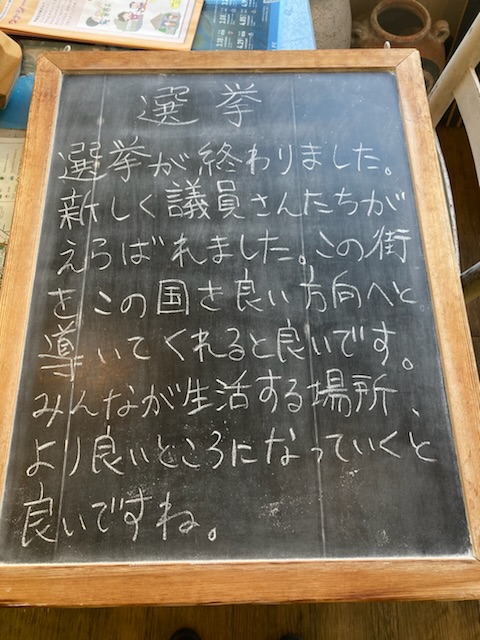 選挙
選挙が終わりました。
新しく議員さんたちが
えらばれました。この街
をこの国を良い方向へと
導いてくれると良いです。
みんなが生活する場所、
より良いところになっていくと
良いですね。